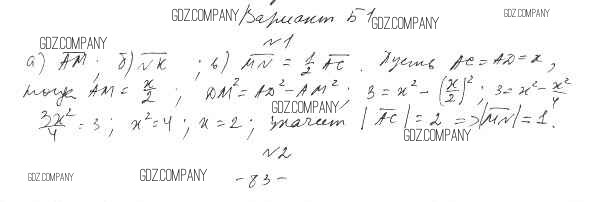 GDZ.COMPANY Вариант Б1 GDZ.COMPANY GDZ.COMPANY
GDZ.COMPANY №1
а) AM; б) NK; в) MN = 1/2 AC. Пусть AC = AD = x,
тогда AM = x/2; DM² = AD² - AM². 3 = x² - (x/2)²; 3 = x² - x²/4
GDZ.COMPANY
3x²/4 = 3; x² = 4; x = 2; значит |AC| = 2 => |MN| = 1.
GDZ.COMPANY
№2
GDZ.COMPANY GDZ.COMPANY - 83 -